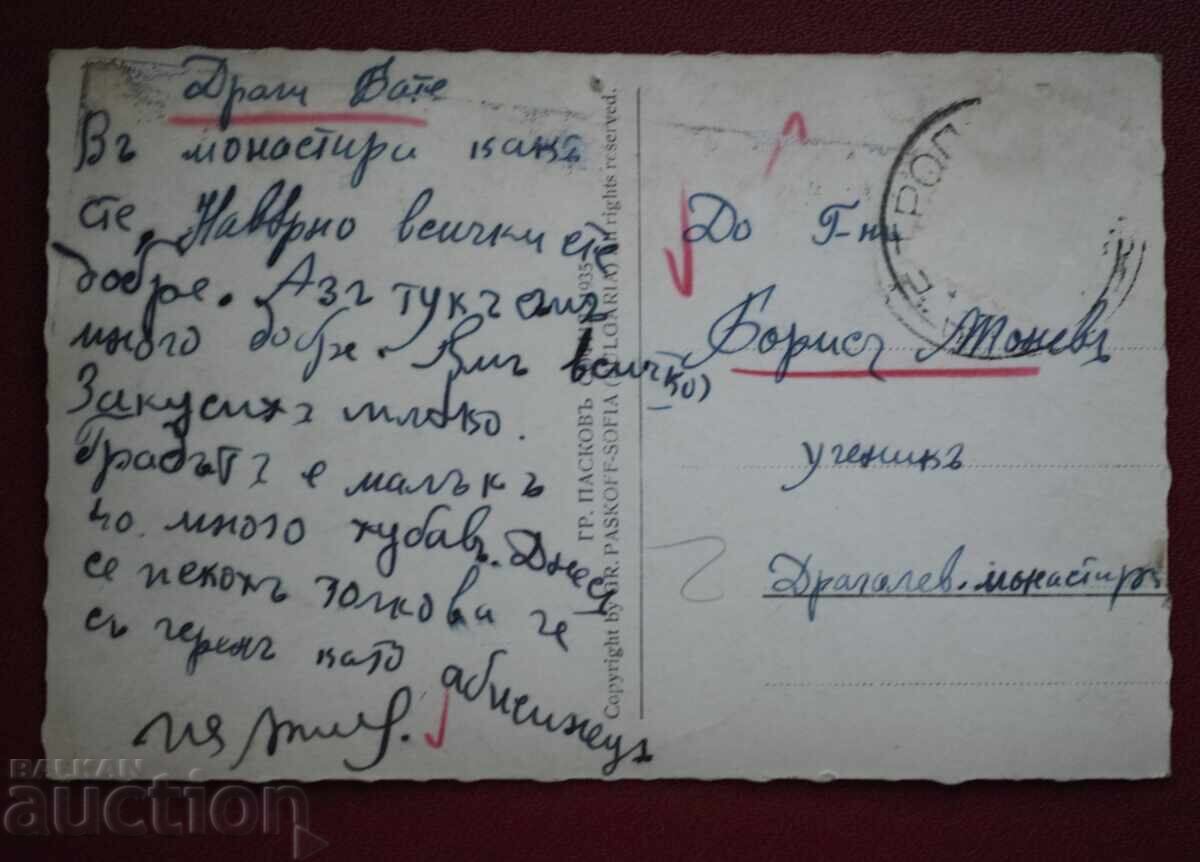 Драги Бате
Въ монастири какъ
сте. Наверно всички сте
добре. Азъ тукъ съмъ
много добре. Ямъ всичко
Закусихъ млеко.
Градътъ е малъкъ
но много хубавъ. Днесъ
се пекохъ толкова че
съ черенъ като
абисинецъ
До Г-нъ
Борисъ Тоневъ
ученикъ
Драгалев. монастиръ
ГР. ПАСКОВЪ 1935
Copyright by GR. PASKOFF-SOFIA (BULGARIA) All rights reserved.
BALKAN
auction